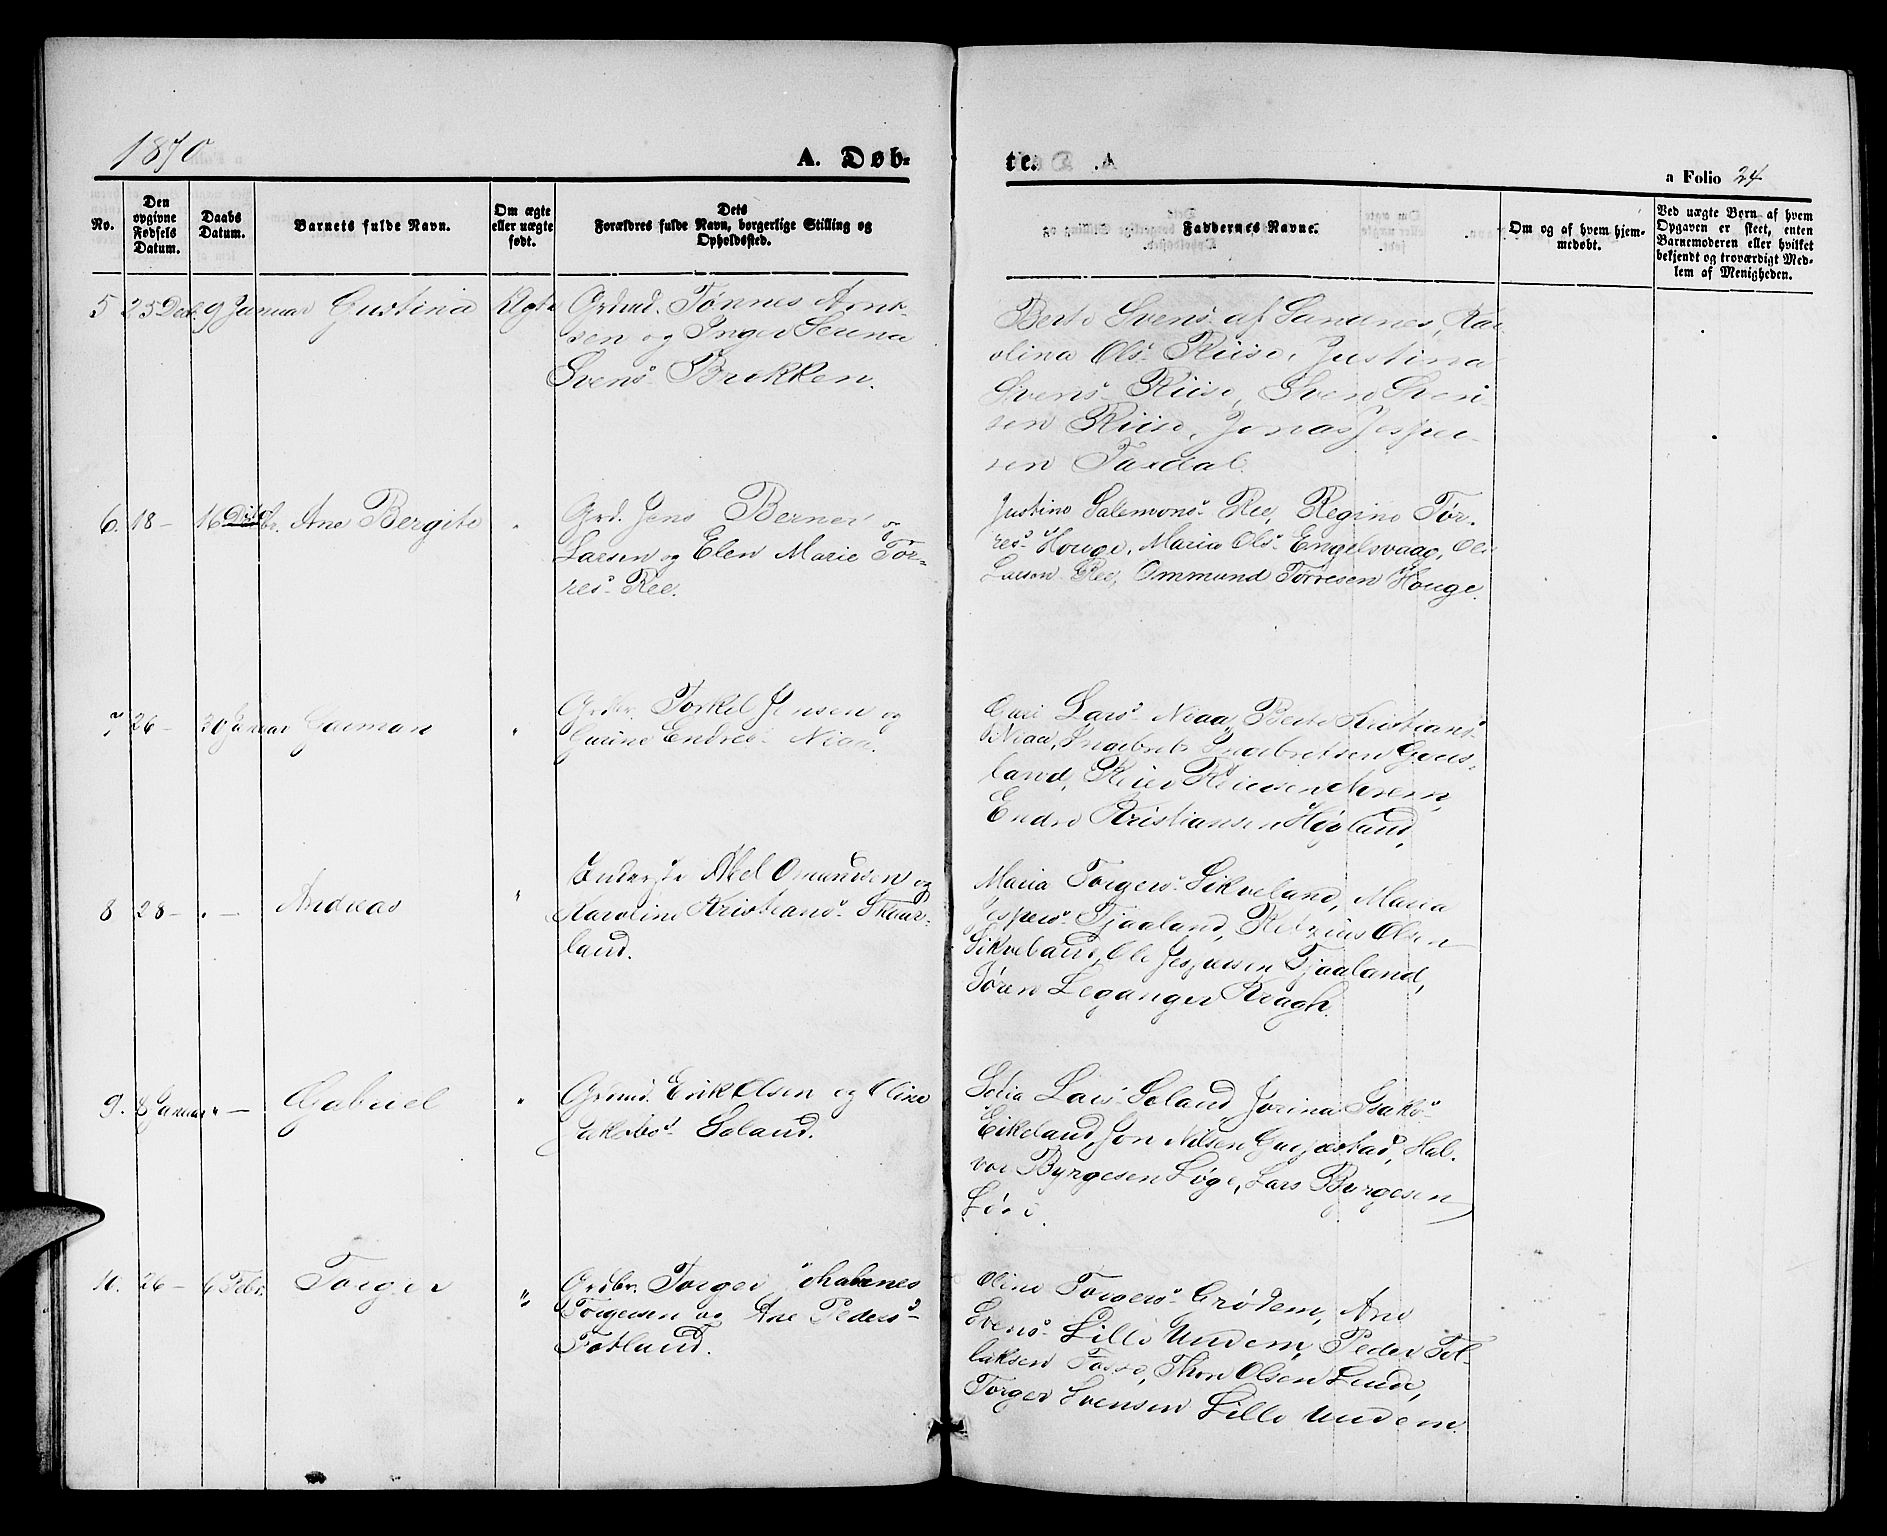 1870
A. Døb-
te.
a Folio 24
No.
Den opgivne Fødsels Datum.
Daabs Datum.
Barnets fulde Navn.
Om ægte eller uægte født.
Dets Forældres fulde Navn, borgerlige Stilling og Opholdssted.
Faddernes Navne.
Om og af hvem hjemmedøbt.
Ved uægte Børn af hvem Opgaven er skeet, enten Barnemoderen eller hvilket bekjendt og troværdigt Medlem af Menigheden.
5 25 Dec. 9 Januar Gustina Ægte
Grdmd. Tønnes
sen og Inger Serina
Svens- Brekken.
Berte Svens- af Sandnes, Ka-
olina Ols- Riise, Justina
Svens- Riise, Sven Sven-
sen Riise, Jonas Jesper-
sen Taxdal.
6. 18 - 16 Ane Bergite "
Grd. Jens Berner
Larsen og Elen Marie Tør-
res- Ree.
Justine Salemons- Ree, Regine Tør-
res- Houge, Maria Ols- Engelsvaag, Ole
Larsen Ree, Ommund Tørresen Houge.
7 26 - 30 Januar Gorman "
Grdbr. Torkel Jensen og
Gurine Endres- Niaa.
Guri Lars- Niaa, Berte Kristians-
Niaa, Ingebret Ingebretsen Gaus-
land, Reier Reiersen Aarem,
Endre Kristiansen Høyland.
8 28 - " - Andreas "
Inderste Abel Omundsen og
Karoline Kristians- Skaar-
land.
Maria Torgers- Sikveland, Maria
Jespers- Tjaaland, Retzius Olsen
Sikveland, Ole Jespersen Tjaaland,
Søren Leganger Kragh.
9. 8 Januar " - Gabriel "
Grdmd. Erik Olsen og Oline
Jakobs- Soland.
Sofia Lars- Soland, Jorina Isaks-
Eikeland, Jon Nilsen Hal-
vor Byrgesen Løge, Lars Byrgesen
Løge.
10. 26 - 6 Febr. Torger "
Grdbr. Torger Malenes
Torgersen og Ane Peders-
Fotland.
Oline Torgers- Grødem, Ane
Svens- Lille Undem, Peder Tol-
laksen Fosse, Thor Olsen Lende,
Torger Svensen Lille Undem.